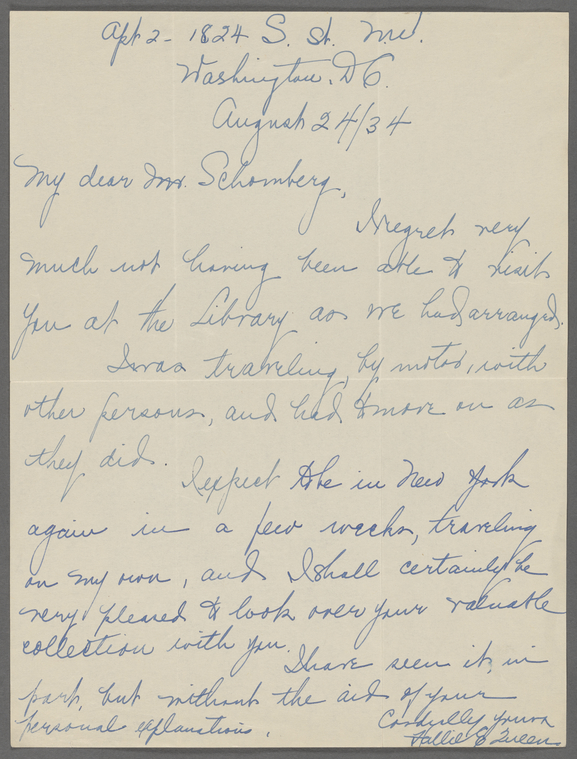 Apt 2 - 1824 S. St. N.W.
Washington, D.C.
August 24/34
My dear Mr. Schomberg,
I regret very
much not having been able to visit
you at the Library as we had arranged.
I was traveling, by motor, with
other persons, and had to move on as
they did.
I expect to be in New York
again in a few weeks, traveling
on my own, and I shall certainly be
very pleased to look over your valuable
collection with you.
I have seen it, in
part, but without the aid of your
personal explanations.
Cordially yours
Hallie E. Queen